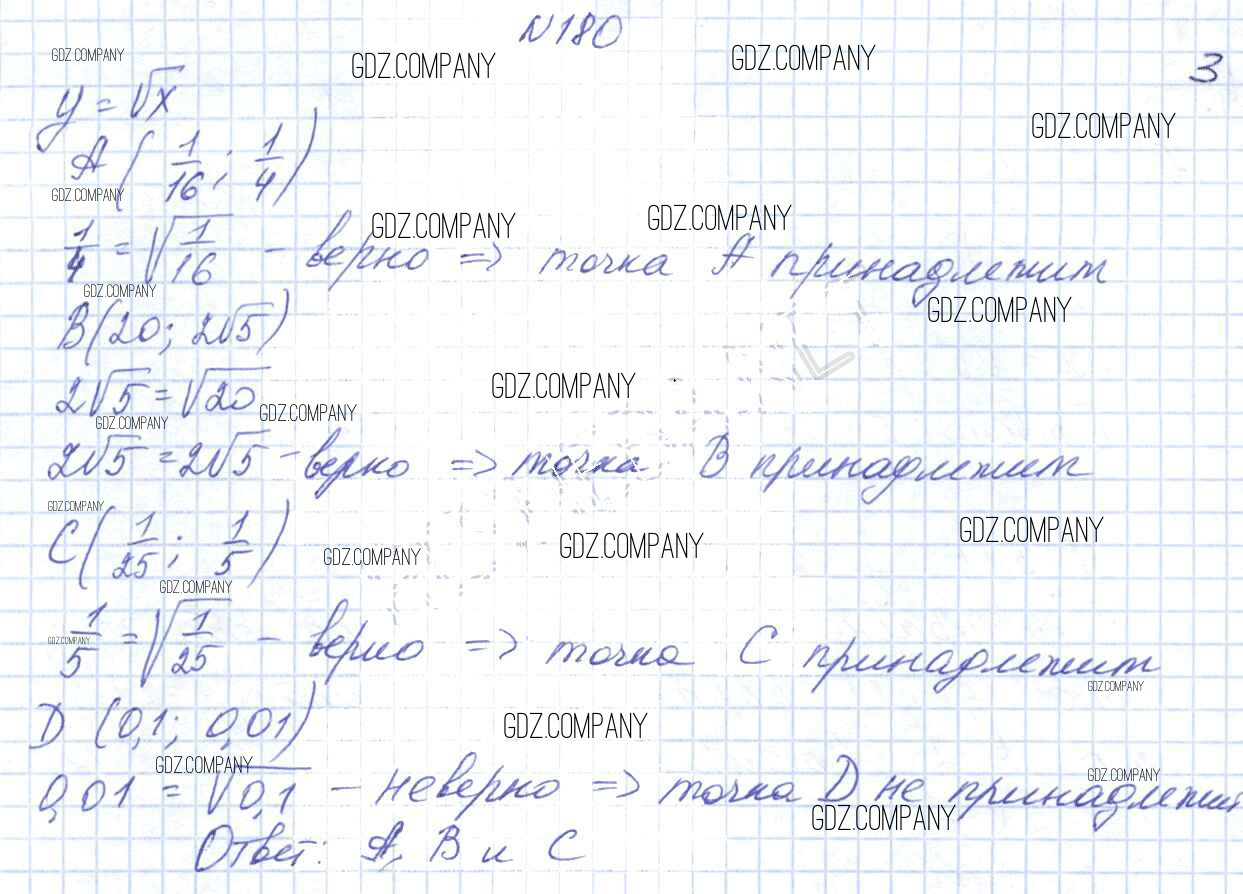 N 180
GDZ.COMPANY GDZ.COMPANY GDZ.COMPANY 3
y = √x GDZ.COMPANY
A (1/16; 1/4)
GDZ.COMPANY GDZ.COMPANY GDZ.COMPANY
1/4 = √(1/16) – верно => точка A принадлежит
GDZ.COMPANY GDZ.COMPANY
B(20; 2√5)
2√5 = √20 GDZ.COMPANY GDZ.COMPANY
GDZ.COMPANY
2√5 = 2√5 – верно => точка B принадлежит
GDZ.COMPANY GDZ.COMPANY
C(1/25; 1/5) GDZ.COMPANY GDZ.COMPANY
GDZ.COMPANY
1/5 = √(1/25) – верно => точка C принадлежит
GDZ.COMPANY GDZ.COMPANY
D (0,1; 0,01) GDZ.COMPANY
GDZ.COMPANY GDZ.COMPANY
0,01 = √0,1 – неверно => точка D не принадлежит
GDZ.COMPANY
Ответ: A, B и C